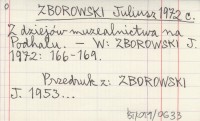 ZBOROWSKI Juliusz 1972 c.
Z dziejów muzealnictwa na
Podhalu. – W: ZBOROWSKI J.
1972: 166-169.
Przedruk z: ZBOROWSKI
J. 1953...